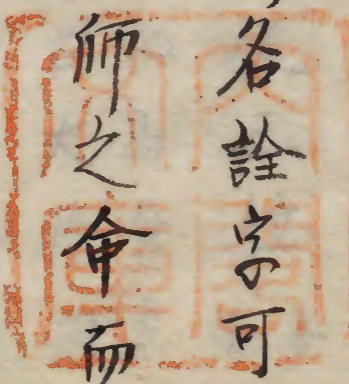 名詮字可
師之命而